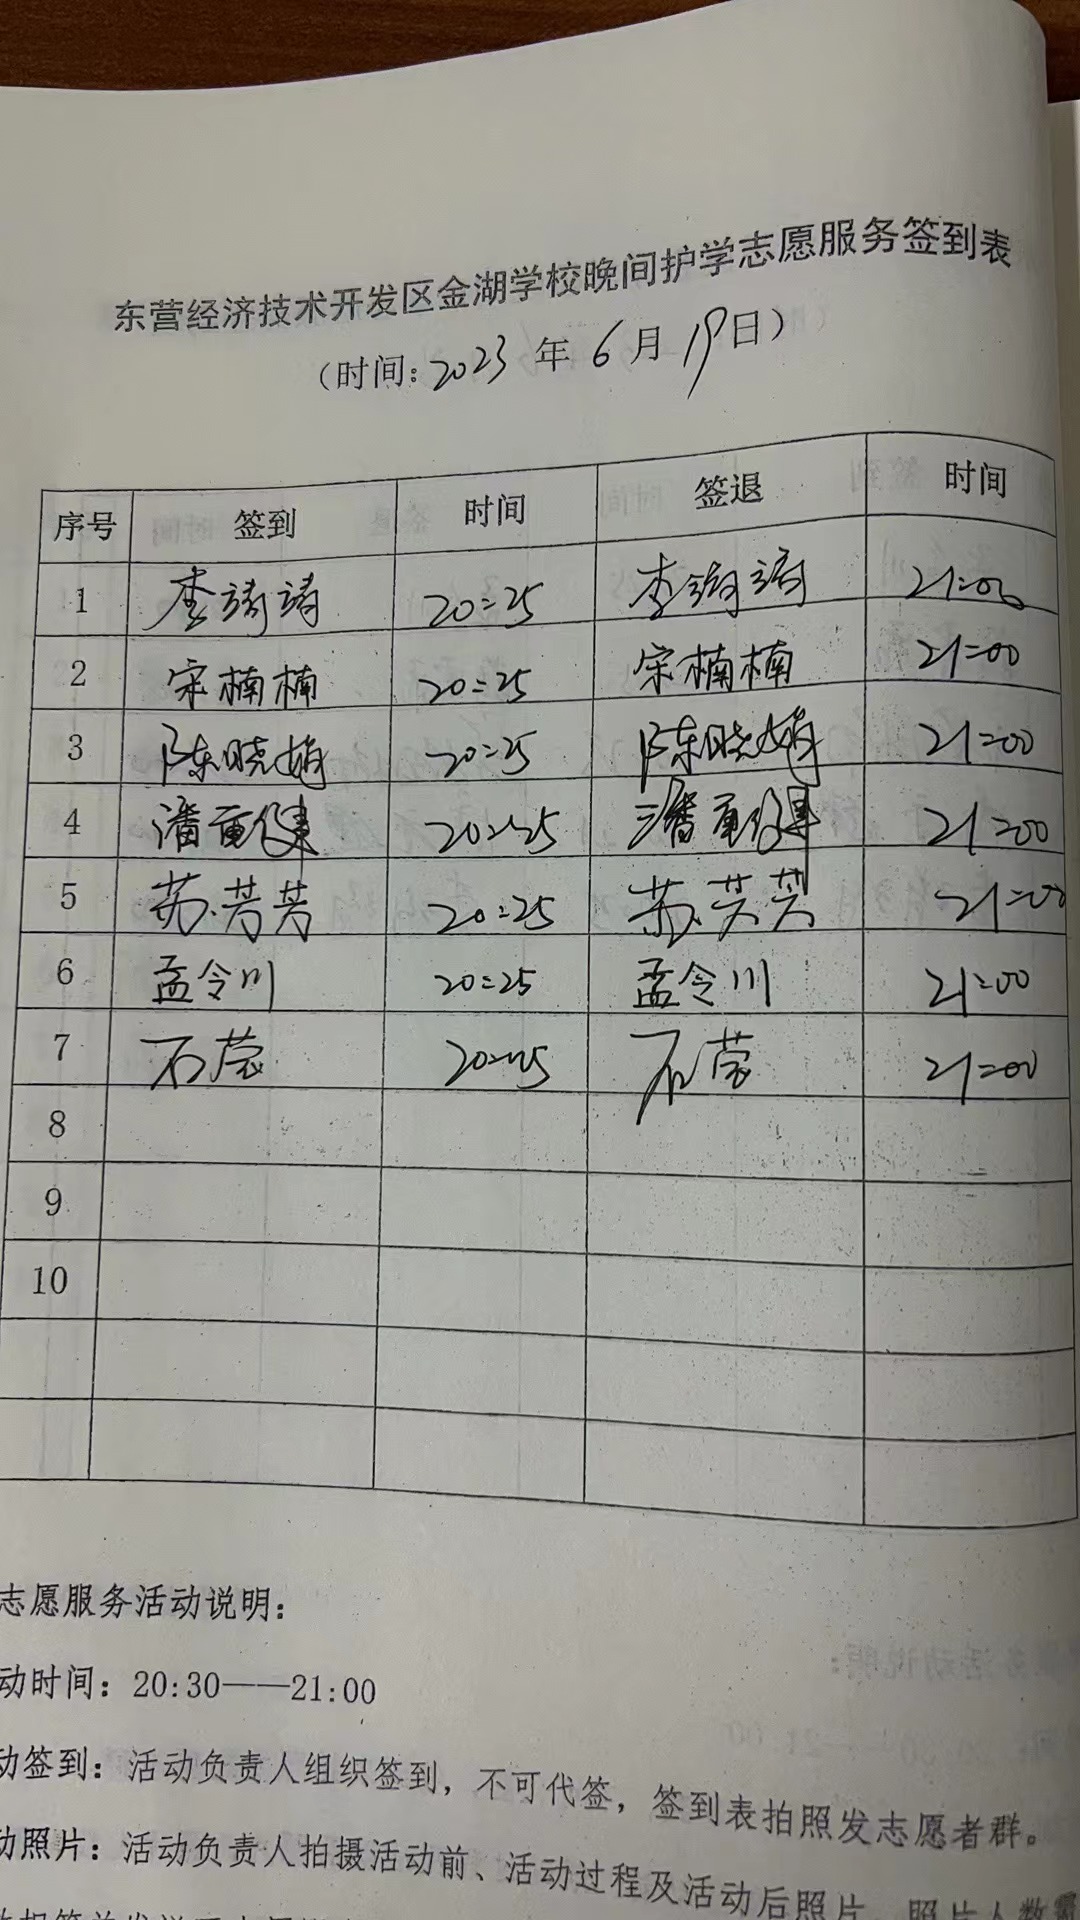 东营经济技术开发区金湖学校晚间护学志愿服务签到表
（时间：2023年6月19日）
序号 签到 时间 签退 时间
1 李靖靖 20:25 李靖靖 21:00
2 宋楠楠 20:25 宋楠楠 21:00
3 陈晓娟 20:25 陈晓娟 21:00
4 潘 20:25 潘 21:00
5 苏芳芳 20:25 苏芳芳 21:00
6 孟令川 20:25 孟令川 21:00
7 石莹 20:25 石莹 21:00
8
9
10
志愿服务活动说明：
动时间：20:30——21:00
动签到：活动负责人组织签到，不可代签，签到表拍照发志愿者群。
动照片：活动负责人拍摄活动前、活动过程及活动后照片，照片人数需